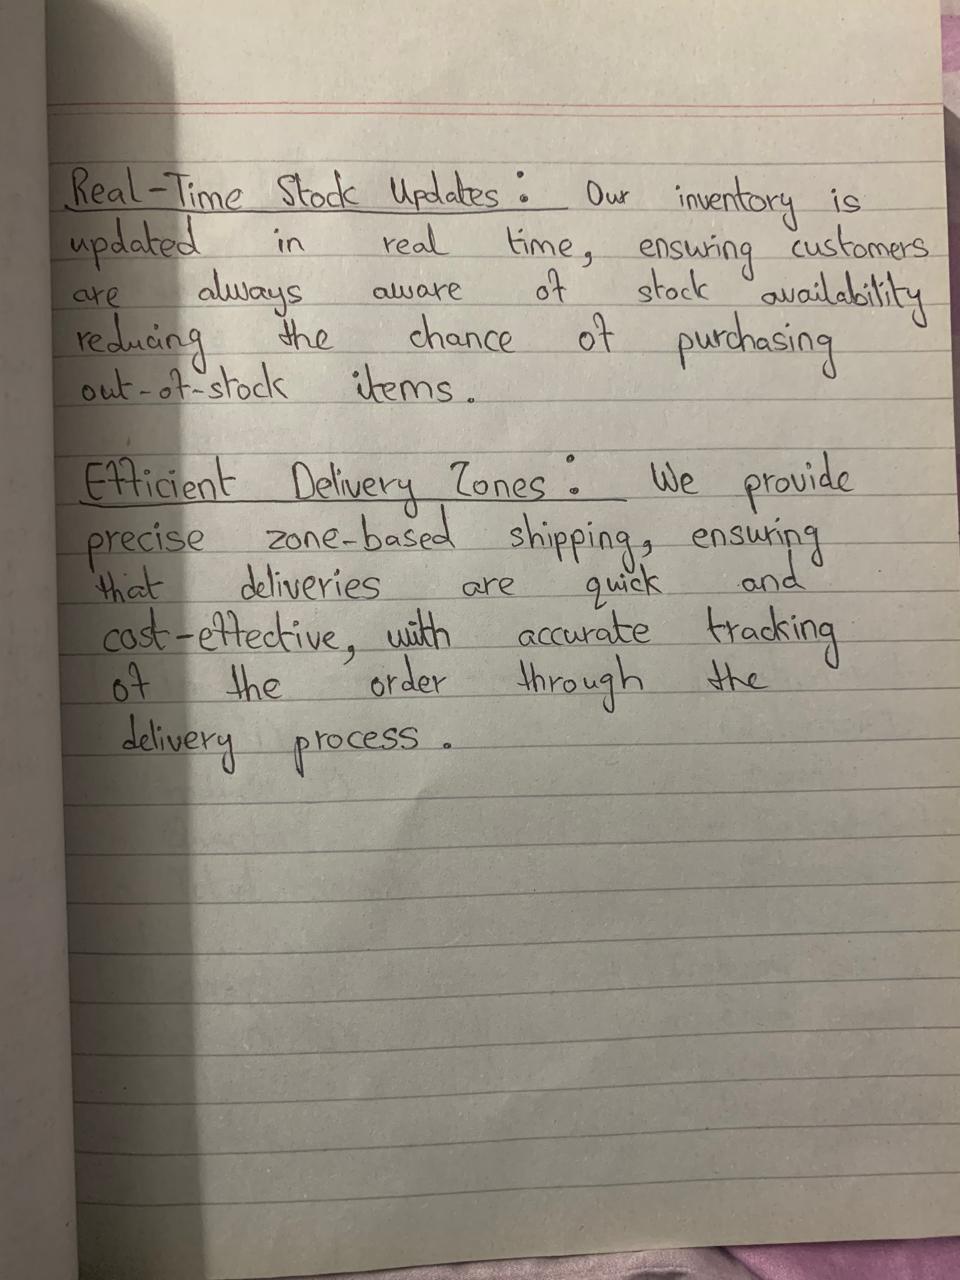 Real-Time Stock Updates: Our inventory is
updated in real time, ensuring customers
are always aware of stock availability
reducing the chance of purchasing
out-of-stock items.
Efficient Delivery Zones: We provide
precise zone-based shipping, ensuring
that deliveries are quick and
cost-effective, with accurate tracking
of the order through the
delivery process.